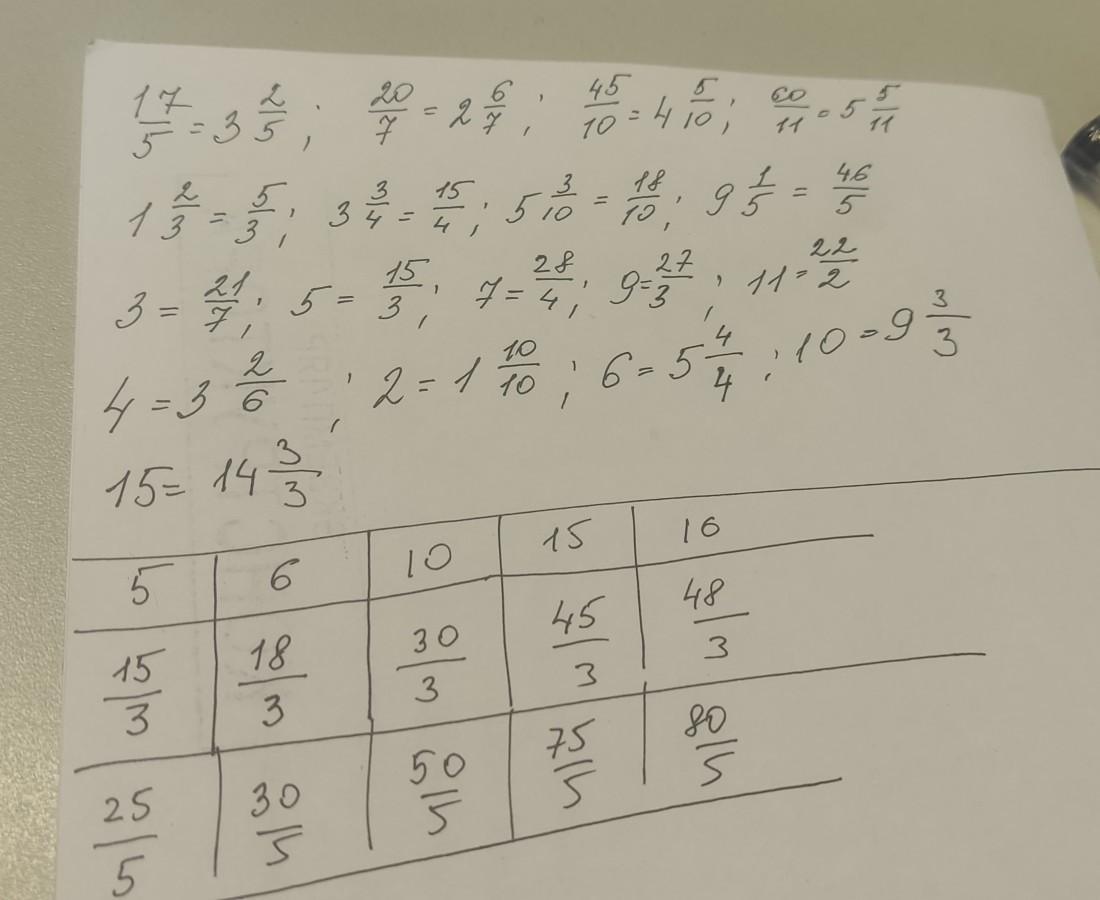 17/5 = 3 2/5 ; 20/7 = 2 6/7 ; 45/10 = 4 5/10 ; 60/11 = 5 5/11
1 2/3 = 5/3 ; 3 3/4 = 15/4 ; 5 3/10 = 18/10 ; 9 1/5 = 46/5
3 = 21/7 ; 5 = 15/3 ; 7 = 28/4 ; 9 = 27/3 ; 11 = 22/2
4 = 3 2/6 ; 2 = 1 10/10 ; 6 = 5 4/4 ; 10 = 9 3/3
15 = 14 3/3
5 6 10 15 16
15/3 18/3 30/3 45/3 48/3
25/5 30/5 50/5 75/5 80/5